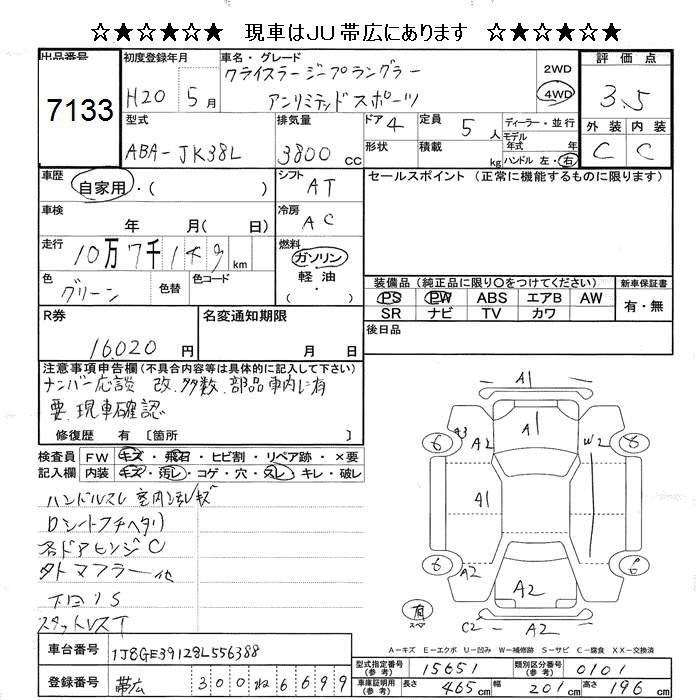 ☆★☆★☆ 現車はJU帯広にあります ☆★☆★☆
出品番号 初度登録年月 車名・グレード 評価点
7133 H20 5月 クライスラー ジープラングラー アンリミテッドスポーツ 2WD 4WD 3.5
型式 排気量 ドア 4 定員 5人 ディーラー・並行 外装 内装
ABA-JK38L 3800cc 形状 積載 kg モデル年式 年 ハンドル 左・右 C C
車歴 自家用・( ) シフト AT セールスポイント (正常に機能するものに限ります)
車検 年 月( 日) 冷房 AC
走行 10万7千1 km 燃料 ガソリン 軽油 ・( )
色 グリーン 色替 色コード
装備品 (純正品に限り〇をつけてください) 新車保証書
PS PW ABS エアB AW 有・無
SR ナビ TV カワ
R券 名変通知期限 後日品
16,020円 月 日
注意事項申告欄(不具合内容等は具体的に記入して下さい)
ナンバー応談 改.多数.部品車内に有
要.現車確認
修復歴 有 〔箇所 〕
検査員 FW キズ・飛石・ヒビ割・リペア跡・×要
記入欄 内装 キズ・汚レ・コゲ・穴・スレ・キレ・破レ
ハンドルスレ 室内 キズ
Dシートフチヘタリ
各ドアヒンジC
タトマフラー他
下回りS
スタットレスT
A1
A1
A3 A2 W2
6 6
A1
6 6
A2 A2
有 スペ C2 A2
A-キズ E-エクボ U-凹み W-補修跡 S-サビ C-腐食 XX-交換済
車台番号 1J8GE39128L556388
型式指定番号(参考) 15651 類別区分番号(参考) 0101
登録番号 帯広 300 ね 6699
車庫証明用(参考) 長さ 465cm 幅 201cm 高さ 196cm